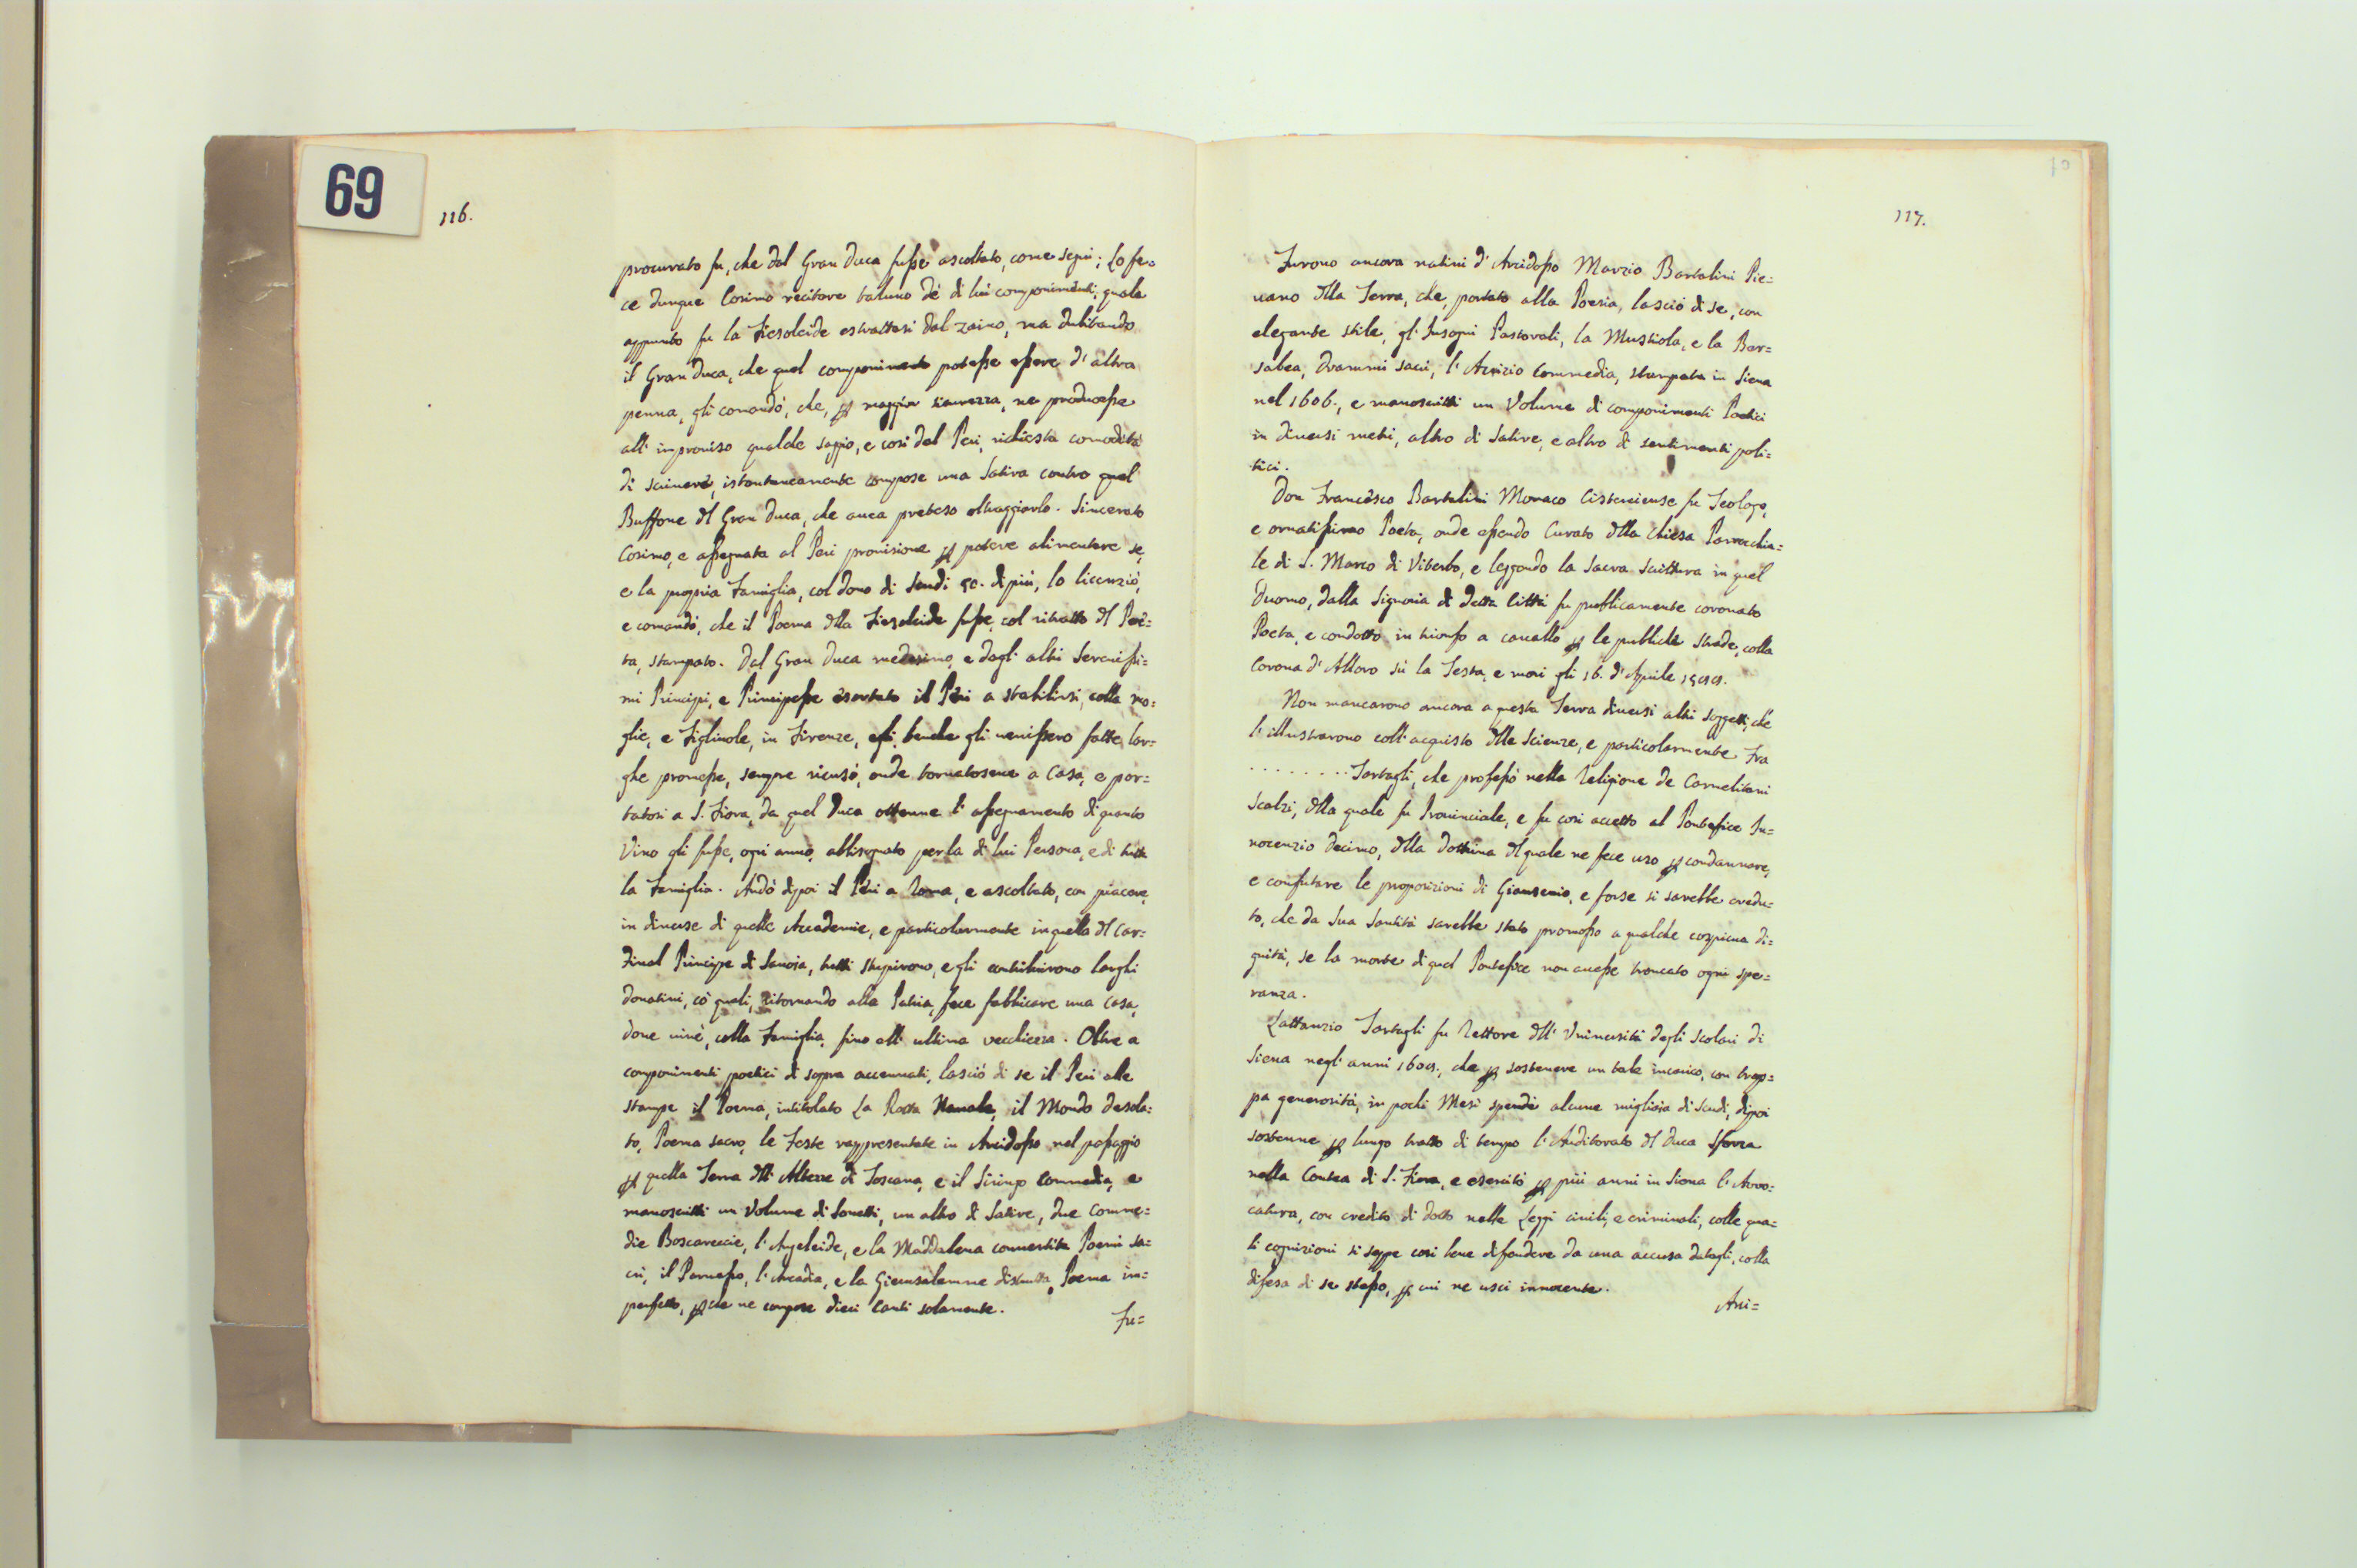 69
116.
procurato fu, che dal Gran Duca fusse ascoltato, come seguì; Lo fe=
ce dunque Cosimo recitare taluno dè di lui componimenti, quale
appunto fu la Fiesoleide estrattasi dal zaino, ma dubitando
il Gran Duca, che quel componimento potesse essere d'altra
penna, gli comandò, che, per maggior sicurezza, ne producesse
all'improviso qualche saggio, e così dal Peri, richiesta comodità
di scrivere, istantaneamente compose una Satira contro quel
Buffone del Gran Duca, che avea preteso oltraggiarlo. Sincerato
Cosimo, e assegnata al Peri provisione per potere alimentare se,
e la propria Famiglia, col dono di Scudi 50. di più, lo licenziò,
e comandò, che il Poema della Fiesoleide fusse, col ritratto del Poe=
ta, stampato. Dal Gran Duca medesimo, e dagl'altri Serenissi=
mi Principi, e Principesse esortato il Peri a stabilirsi, colla mo=
glie, e Figliuole, in Firenze, essi, benche gli venissero fatte lar=
ghe promesse, sempre ricusò, onde tornatosene a Casa, e por=
tatosi a S. Fiora, da quel Duca ottenne l'assegnamento di quanto
Vino gli fusse, ogni anno, abbisognato per la di lui Persona, e di tutta
la Famiglia. Andò dipoi il Peri a Roma, e ascoltato, con piacere,
in diverse di quelle Accademie, e particolarmente in quella del Car=
dinal Principe di Savoia, tutti stupirono, e gli contribuirono larghi
donativi, cò quali, ritornando alla Patria, fece fabbricare una Casa,
dove vivè, colla Famiglia, fino all'ultima vecchiezza. Oltre a
componimenti poetici di sopra accennati, lasciò di se il Peri alle
stampe il Poema, intitolato La Rotta Navale, il Mondo desola=
to, Poema sacro, le Feste rappresentate in Arcidosso nel passaggio
per quella Terra dell'Altezze di Toscana, e il Siringo Commedia, e
manoscritti un Volume di Sonetti, un altro di Satire, due Comme=
die Boscareccie, l'Angeleide, e la Maddalena convertita Poemi sa=
cri, il Parnasso, l'Arcadia, e la Gierusalemme distrutta, Poema im=
perfetto, perche ne compose dieci Canti solamente.
Fu=
117.
Furono ancora nativi d'Arcidosso Marzio Bartalini Pie=
vano della Terra, che, portato alla Poesia, lasciò di se, con
elegante stile, gl'Insogni Pastorali, la Mustiola, e la Ber=
sabea, Drammi sacri, l'Arsizio Commedia, stampata in Siena
nel 1606., e manoscritti un Volume di componimenti Poetici
in diversi metri, altro di Satire, e altro di sentimenti poli=
tici.
Don Francesco Bartalini Monaco Cisterciense fu Teologo,
e ornatissimo Poeta, onde essendo Curato della Chiesa Parrochia=
le di S. Marco di Viterbo, e leggendo la Sacra Scittura in quel
Duomo, dalla Signoria di detta Città fu pubblicamente coronato
Poeta, e condotto in trionfo a cavallo per le pubbliche strade, colla
Corona d'Alloro sù la Testa, e morì gli 16. d'Aprile 1599.
Non mancarono ancora a questa Terra diversi altri soggetti, che
l'illustrarono coll'acquisto delle Scienze, e particolarmente Fra
. . . . . . . . Tartagli, che professò nella Religione de Carmelitani
Scalzi, della quale fu Provinciale, e fu così accetto al Pontefice In=
nocenzio Decimo, della dottrina del quale ne fece uso per condannare,
e confutare le proposizioni di Giansenio, e forse si sarebbe credu=
to, che da Sua Santità sarebbe stato promosso a qualche cospicua di=
gnità, se la morte di quel Pontefice non avesse troncato ogni spe=
ranza.
Lattanzio Tartagli fu Rettore dell'Università degli Scolari di
Siena negl'anni 1609., che per sostenere un tale incarico, con trop=
pa generosità, in pochi Mesi spendè alcune migliaia di Scudi, dipoi
sostenne per lungo tratto di tempo l'Auditorato del Duca Sforza
nella Contea di S. Fiora, e esercitò per più anni in Siena l'Avvo=
catura, con credito di dotto nelle Leggi civili, e criminali, colle qua=
li cognizioni si seppe così bene difendere da una accusa datagli, colla
difesa di se stesso, per cui ne uscì innocente.
Arci=